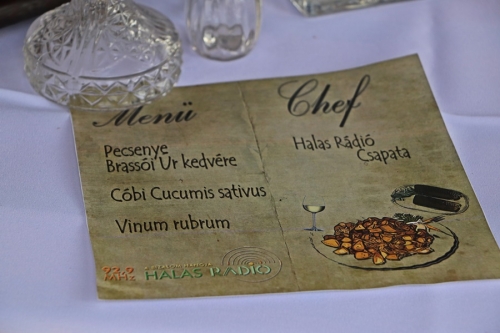 Menü
Pecsenye
Brassói Úr kedvére
Cóbi Cucumis sativus
Vinum rubrum
Chef
Halas Rádió
Csapata
92.9
MHz
HALAS RÁDIÓ